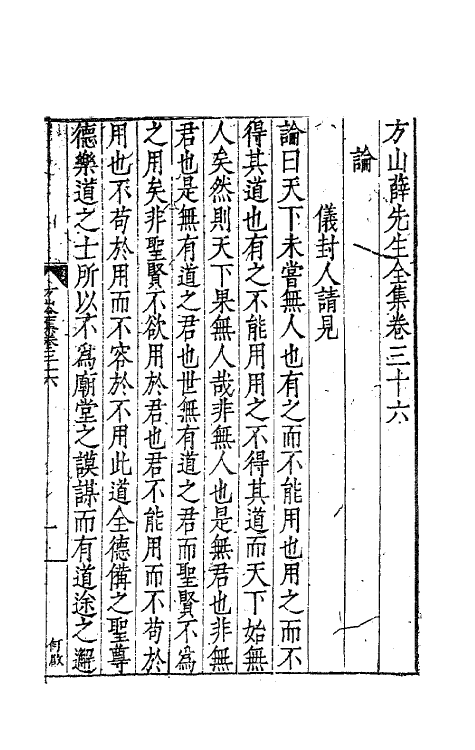 方山薛先生全集卷三十六
論
儀封人請見
論曰天下未嘗無人也有之而不能用也用之而不
得其道也有之不能用用之不得其道而天下始無
人矣然則天下果無人哉非無人也是無君也非無
君也是無有道之君也世無有道之君而聖賢不為
之用矣非聖賢不欲用於君也君不能用而不苟於
用也不苟於用而不容於不用此道全德備之聖尊
德樂道之士所以不為廟堂之謨謀而有道途之邂
方山全集卷三十六
一
何敃